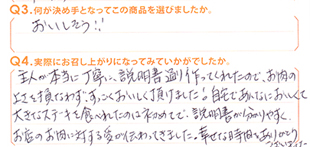 Q3.何が決め手となってこの商品を選びましたか。
おいしそう!!
Q4.実際にお召し上がりになってみていかがでしたか。
主人が本当に丁寧に、説明書通り作ってくれたので、お肉の
よさを損なわず、すっごくおいしく頂けました!自宅であんなにおいしくて
大きなステーキを食べれたのは初めてで、説明書が分かりやすく、
お店のお肉に対する愛が伝わってきました。幸せな時間をありがとう
ございました